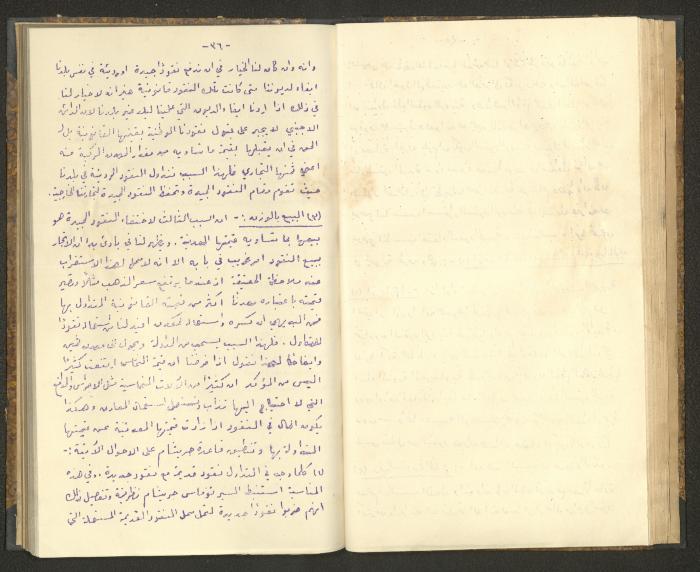 -٣٦-
وانه وان كان لنا الخيار في ان ندفع نقودًا جيدة او رديئة في نفس بلدنا
ايفاء لديوننا متى كانت تلك النقود قانونية غير انه لا خيار لنا
في ذلك اذا اردنا ايفاء الديون التي علينا لبلد غير بلدنا لان الدائن
الاجنبي لا يجبر على قبول نقودنا الوطنية بقيمتها القانونية بل له
الحق في ان يقبلها بقيمة ما تساويه من مقدار المعدن المركبة منه
اعني قيمتها التجاري فلهذا السبب تتداول النقود الرديئة في بلدنا
حيث تقوم مقام النقود الجيدة وتحفظ النقود الجيدة لتجارتنا الخارجية.
(٣) البيع بالوزن :- ان السبب الثالث لاختفاء النقود الجيدة هو
بيعها بما تساويه قيمتها المعدنية. ويظهر لنا في بادئ بدء ان الاتجار
ببيع النقود امر غريب في بابه الا انه لا محل لهذا الاستغراب
عند ملاحظة الحقيقة اذ عندما يرتفع سعر الذهب مثلًا وتصير
قيمته باعتباره معدنًا اكثر من قيمته القانونية المتداول بها
فمن البديهي ان كسره واستعماله كمعدن افيد لنا من استعماله نقودًا
للتداول. فلهذا السبب يسحب من الدولة ويحول الى معدن ثمين
وايضاحًا لهذا نقول اذا فرضنا ان قيمة النحاس ارتفعت كثيرًا
اليس من المؤكد ان كثيرًا من الآلات النحاسية مثل الاجراس والمدافع
التي لا احتياج اليها تذاب وتستعمل استعمال المعادن وهكذا
يكون الحال في النقود اذا زادت قيمتها المعدنية عن قيمتها
المتداولة بها وتنطبق قاعدة جريشام على الاحوال الآتية :-
(١) كلما وجد في التداول نقود قديمة مع نقود جديدة. وفي هذه
المناسبة استنبط السير توماس جريشام نظريته وتفصيل ذلك
انهم ضربوا نقودًا جديدة لتحل محل النقود القديمة المستعملة التي